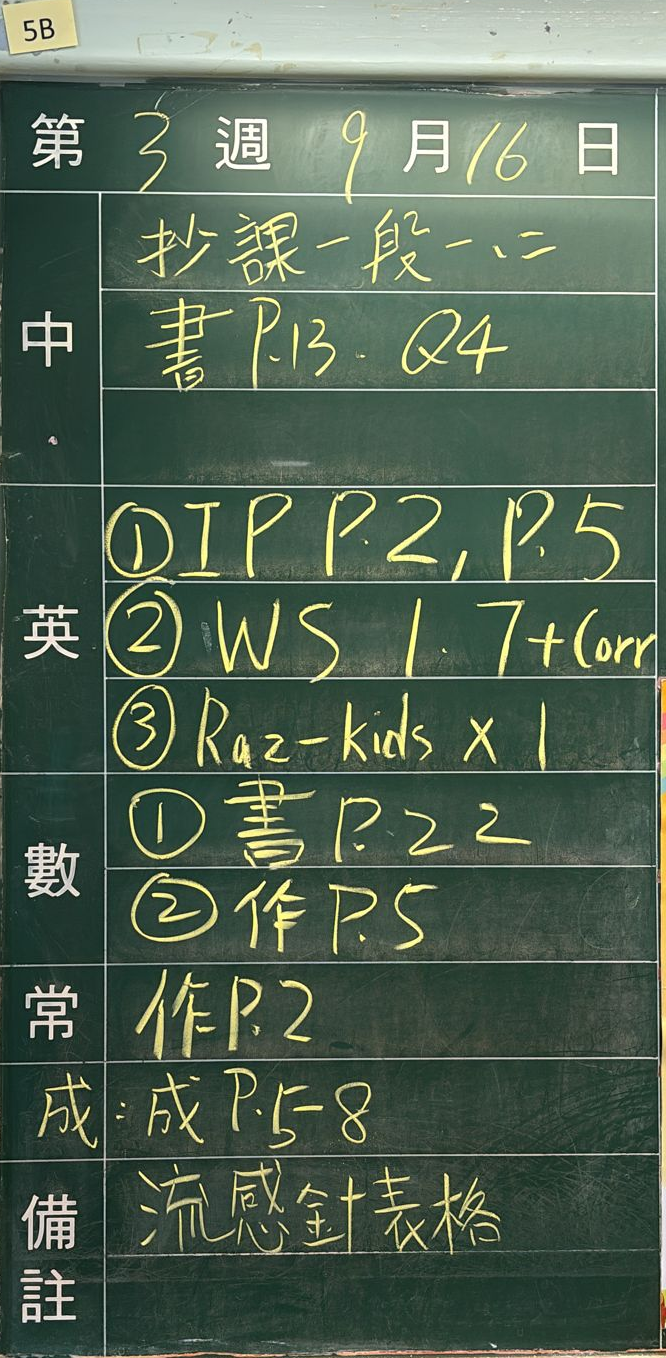 5B
第 3 週 9 月 16 日
中
抄課一段一、二
書 P.13. Q4
英
① IP P.2, P.5
② WS 1.7+Corr
③ Raz-kids x 1
數
① 書 P.22
② 作 P.5
常
作 P.2
成：成 P.5-8
備註
流感針表格